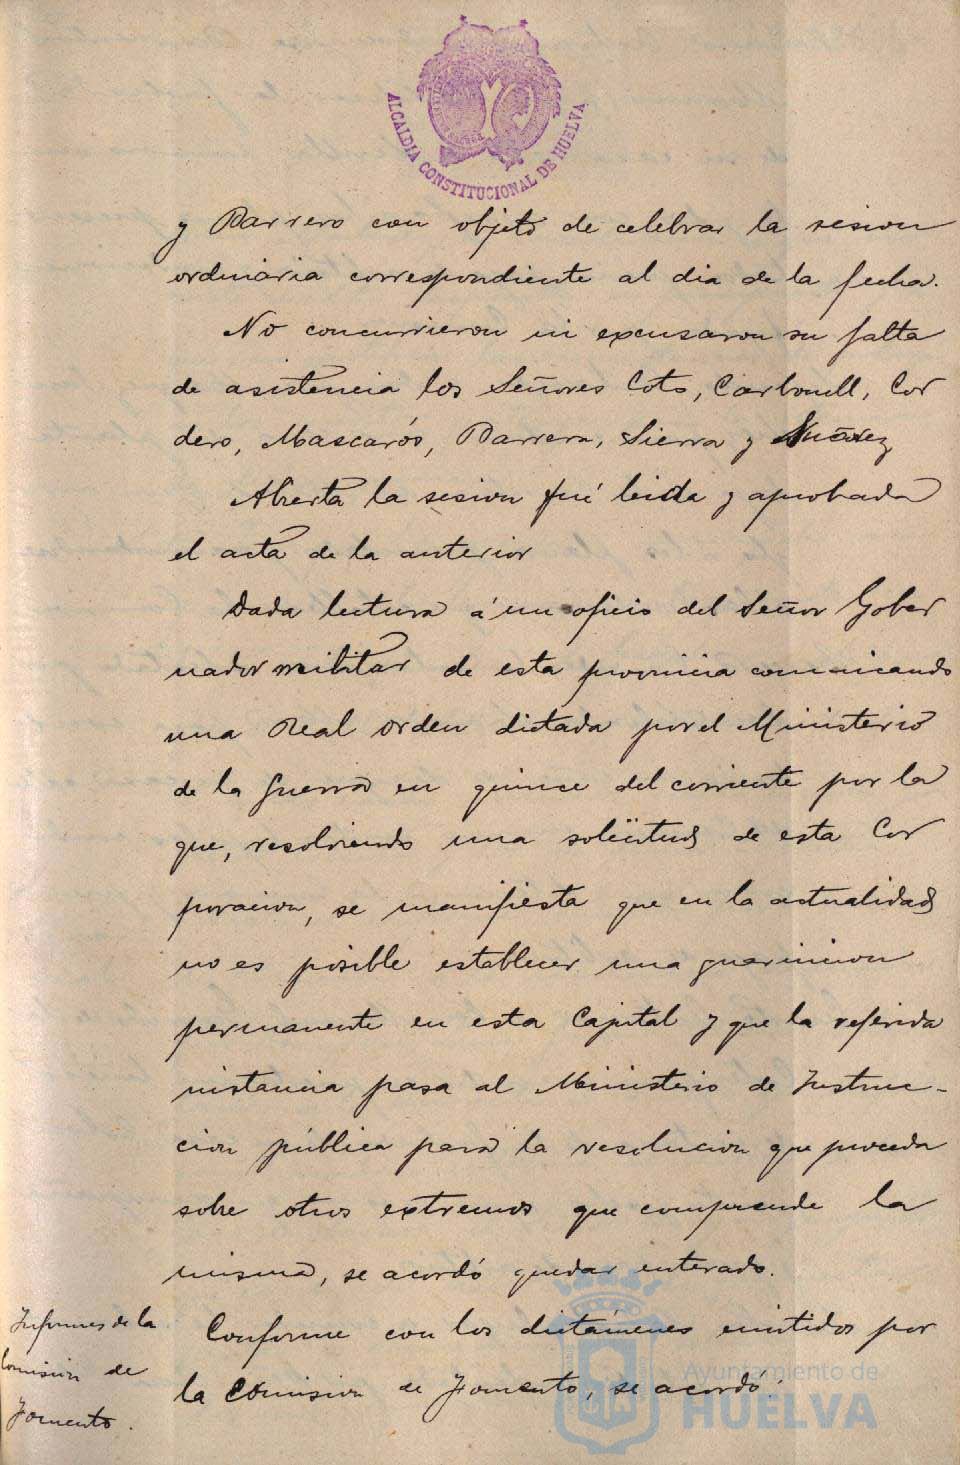 ALCALDIA CONSTITUCIONAL DE HUELVA
y Barrero con objeto de celebrar la sesion
ordinaria correspondiente al dia de la fecha.
No concurrieron ni excusaron su falta
de asistencia los Señores Coto, Carbonell, Cor
dero, Mascarós, Barrera, Sierra y Suárez
Abierta la sesion fué leida y aprobada
el acta de la anterior
Dada lectura á un oficio del Señor Gober
nador militar de esta provincia comunicando
una Real orden dictada por el Ministerio
de la Guerra en quince del corriente por la
que, resolviendo una solicitud de esta Cor
poracion, se manifiesta que en la actualidad
no es posible establecer una guarnicion
permanente en esta Capital y que la referida
instancia pasa al Ministerio de Instruc-
cion pública para la resolucion que proceda
sobre otros extremos que comprende la
misma, se acordó quedar enterado.
Informes de la
Comision de
Fomento.
Conforme con los dictámenes emitidos por
la Comision de Fomento, se acordó:
Ayuntamiento de
HUELVA